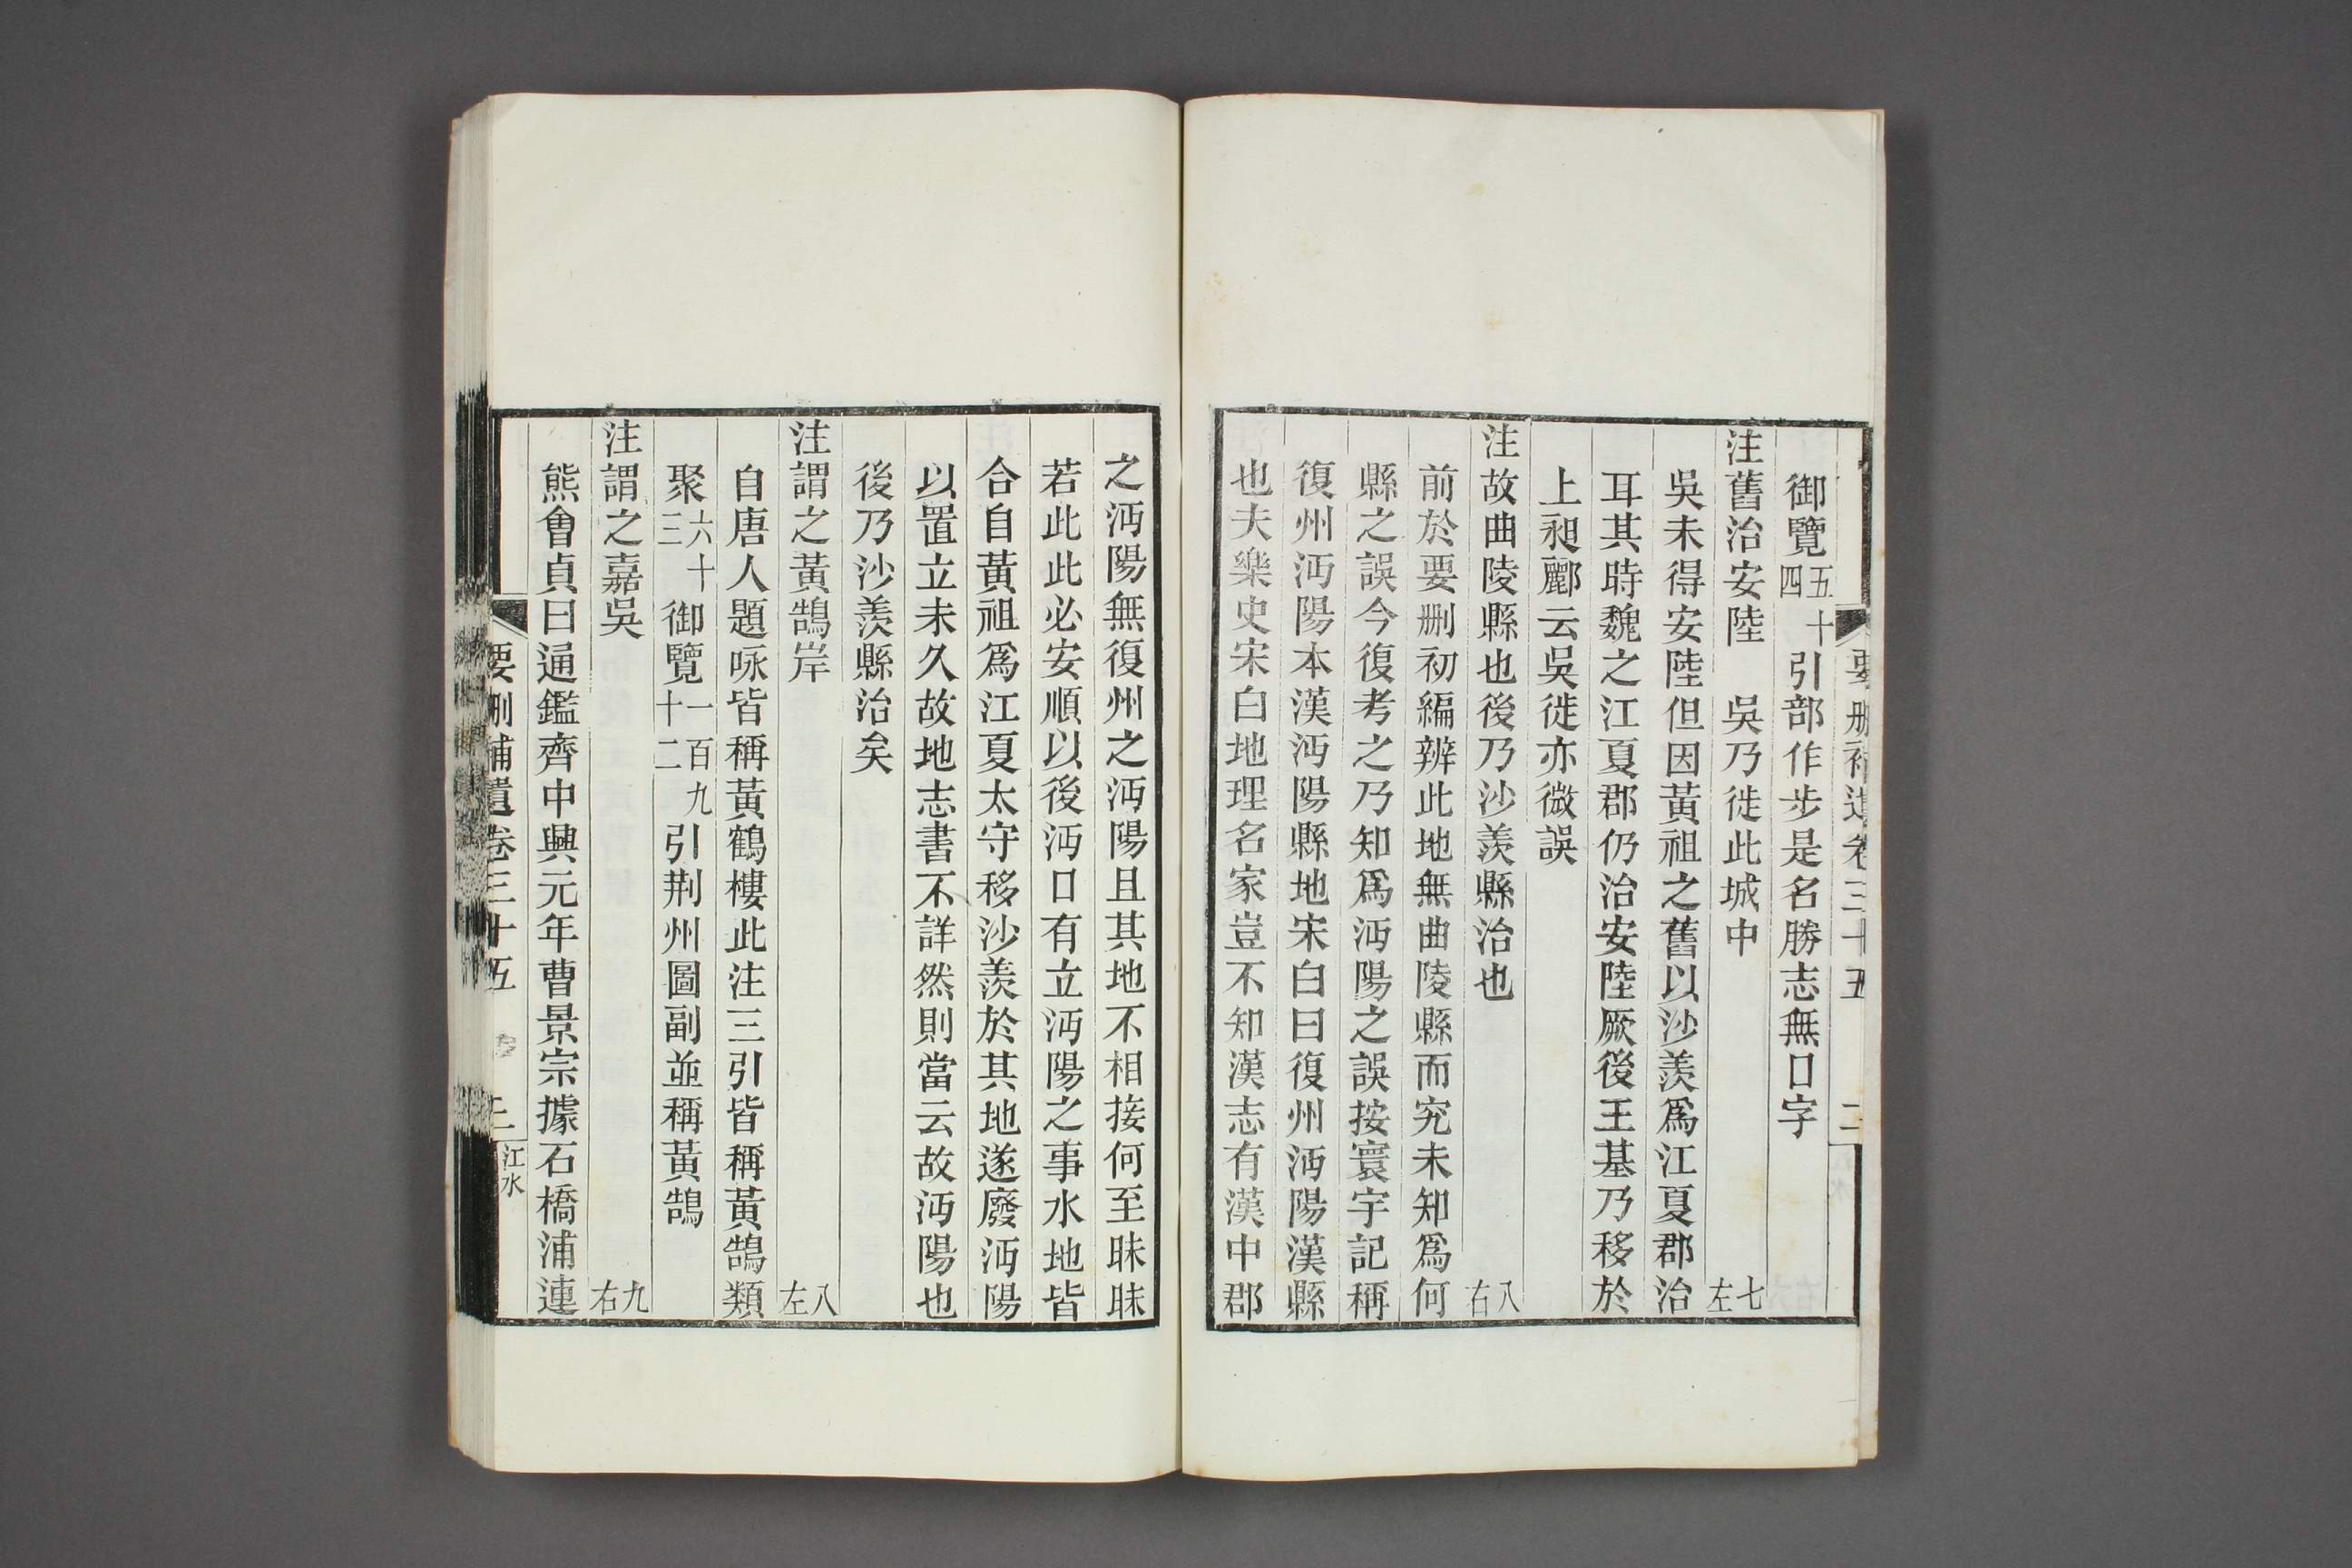 要刪補遺卷三十五 二
御覽五十四引部作步是名勝志無口字
注舊治安陸 吳乃徙此城中 七左
吳未得安陸但因黃祖之舊以沙羨爲江夏郡治
耳其時魏之江夏郡仍治安陸厥後王基乃移於
上昶酈云吳徙亦微誤
注故曲陵縣也後乃沙羨縣治也 八右
前於要刪初編辨此地無曲陵縣而究未知爲何
縣之誤今復考之乃知爲沔陽之誤按寰宇記稱
復州沔陽本漢沔陽縣地宋白曰復州沔陽漢縣
也夫樂史宋白地理名家豈不知漢志有漢中郡
之沔陽無復州之沔陽且其地不相接何至昧昧
若此此必安順以後沔口有立沔陽之事水地皆
合自黃祖爲江夏太守移沙羨於其地遂廢沔陽
以置立未久故地志書不詳然則當云故沔陽也
後乃沙羨縣治矣
注謂之黃鵠岸 八左
自唐人題咏皆稱黃鶴樓此注三引皆稱黃鵠類
聚六十三御覽一百九十二引荆州圖副並稱黃鵠
注謂之嘉吳 九右
熊會貞曰通鑑齊中興元年曹景宗據石橋浦連
要刪補遺卷三十五 三 江水